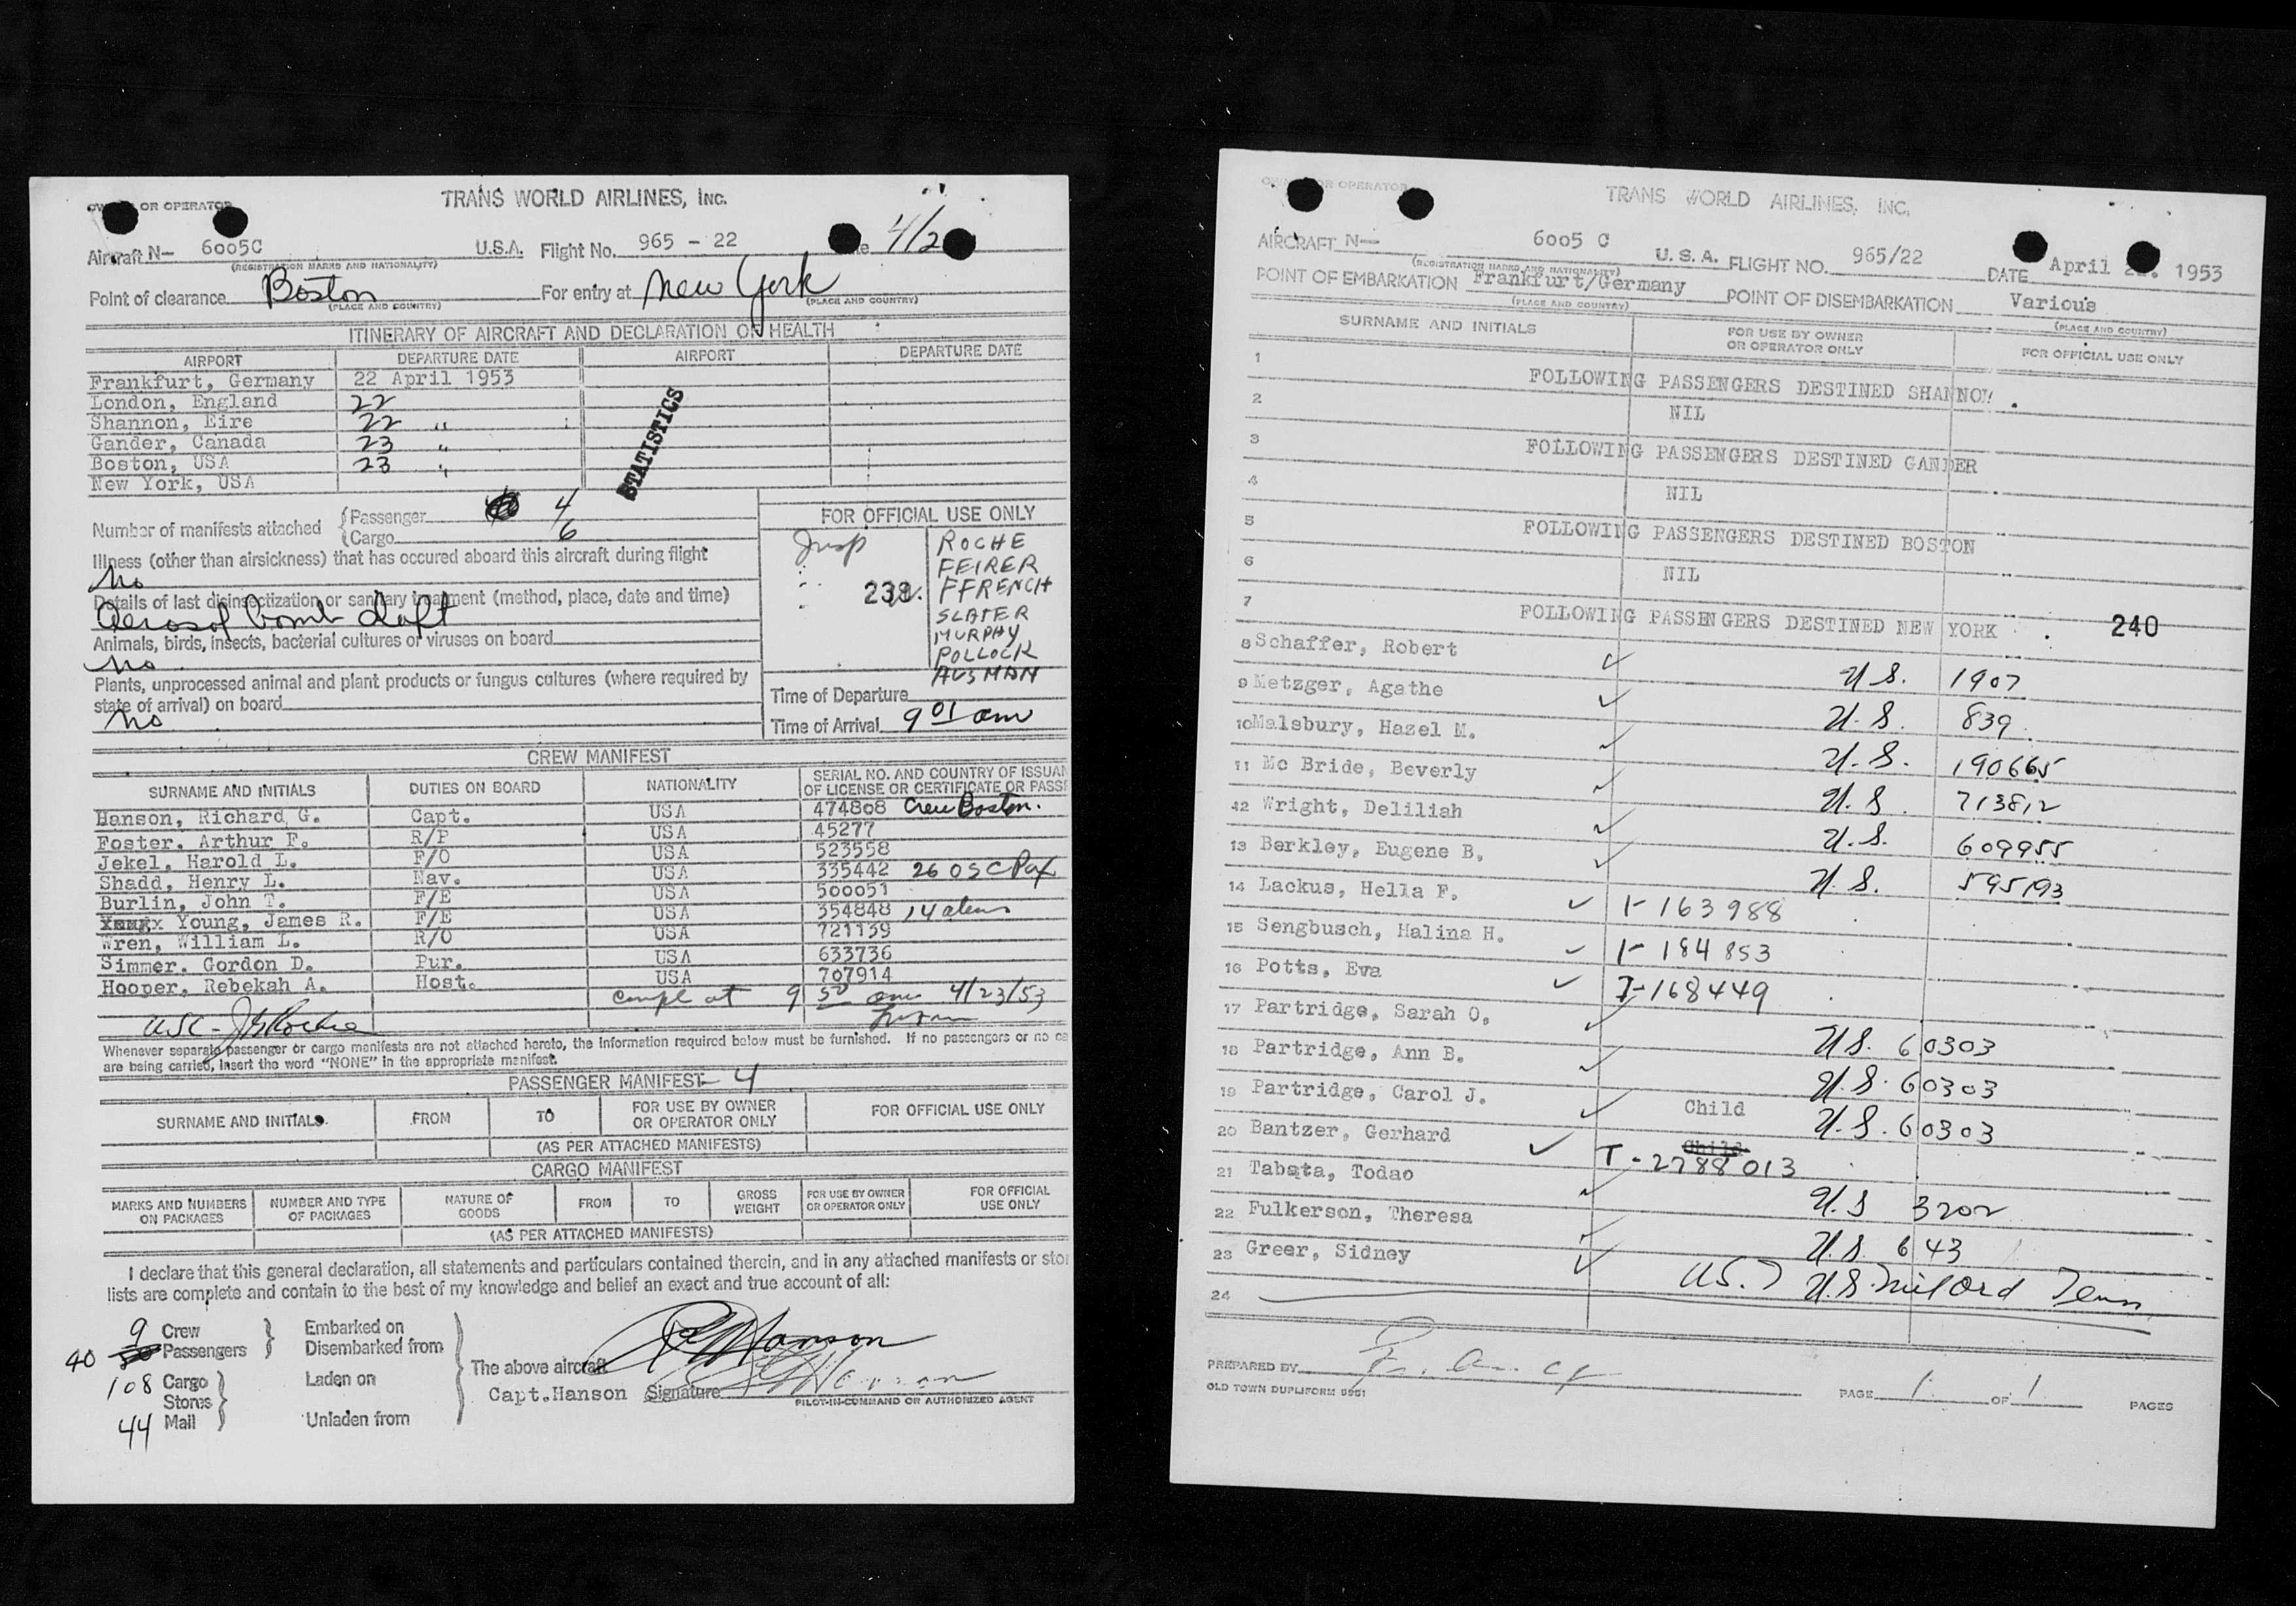 TRANS WORLD AIRLINES, INC.
OR OPERATOR
Aircraft N- 6005C U.S.A. Flight No. 965 - 22 4/2
(REGISTRATION MARKS AND NATIONALITY)
Point of clearance Boston For entry at New York
(PLACE AND COUNTRY) (PLACE AND COUNTRY)
ITINERARY OF AIRCRAFT AND DECLARATION OF HEALTH
AIRPORT DEPARTURE DATE AIRPORT DEPARTURE DATE
Frankfurt, Germany 22 April 1953
London, England 22
Shannon, Eire 22 "
Gander, Canada 23 "
Boston, USA 23 "
New York, USA
STATISTICS
Number of manifests attached Passenger 4
Cargo 6
Illness (other than airsickness) that has occured aboard this aircraft during flight
No
Details of last disinsectization or sanitary treatment (method, place, date and time)
Aerosol bomb
Animals, birds, insects, bacterial cultures or viruses on board
No
Plants, unprocessed animal and plant products or fungus cultures (where required by
state of arrival) on board
No
FOR OFFICIAL USE ONLY
Insp ROCHE
FEIRER
FFRENCH
SLATER
MURPHY
POLLOCK
AUSMAN
Time of Departure
Time of Arrival 9 01 am
CREW MANIFEST
SURNAME AND INITIALS DUTIES ON BOARD NATIONALITY SERIAL NO. AND COUNTRY OF ISSUAN
OF LICENSE OR CERTIFICATE OR PASS
Hanson, Richard G. Capt. USA 474808 Crew Boston.
Foster. Arthur F. R/P USA 45277
Jekel, Harold L. F/O USA 523558
Shadd, Henry L. Nav. USA 335442 26 USC Pax
Burlin, John T. F/E USA 500051
Young, James R. F/E USA 354848 14 aliens
Wren, William L. R/O USA 721139
Simmer. Gordon D. Pur. USA 633736
Hooper, Rebekah A. Host. USA 707914
compl at 9 50 am 4/23/53
USC - J G Roche
Whenever separate passenger or cargo manifests are not attached hereto, the information required below must be furnished. If no passengers or no ca
are being carried, insert the word "NONE" in the appropriate manifest.
PASSENGER MANIFEST - 4
SURNAME AND INITIALS. FROM TO FOR USE BY OWNER OR OPERATOR ONLY FOR OFFICIAL USE ONLY
(AS PER ATTACHED MANIFESTS)
CARGO MANIFEST
MARKS AND NUMBERS ON PACKAGES NUMBER AND TYPE OF PACKAGES NATURE OF GOODS FROM TO GROSS WEIGHT FOR USE BY OWNER OR OPERATOR ONLY FOR OFFICIAL USE ONLY
(AS PER ATTACHED MANIFESTS)
I declare that this general declaration, all statements and particulars contained therein, and in any attached manifests or stor
lists are complete and contain to the best of my knowledge and belief an exact and true account of all:
9 Crew Embarked on
40 Passengers Disembarked from
108 Cargo Laden on
Stores
44 Mail Unladen from
The above aircraft
Capt.Hanson Signature RG Hanson
PILOT-IN-COMMAND OR AUTHORIZED AGENT
OR OPERATOR
TRANS WORLD AIRLINES, INC.
AIRCRAFT N- 6005 C U. S. A. FLIGHT NO. 965/22 DATE April 1953
(REGISTRATION MARKS AND NATIONALITY)
POINT OF EMBARKATION Frankfurt/Germany POINT OF DISEMBARKATION Various
(PLACE AND COUNTRY) (PLACE AND COUNTRY)
SURNAME AND INITIALS FOR USE BY OWNER OR OPERATOR ONLY FOR OFFICIAL USE ONLY
1 FOLLOWING PASSENGERS DESTINED SHANNON
2 NIL
3 FOLLOWING PASSENGERS DESTINED GANDER
4 NIL
5 FOLLOWING PASSENGERS DESTINED BOSTON
6 NIL
7 FOLLOWING PASSENGERS DESTINED NEW YORK 240
8 Schaffer, Robert U.S. 1907
9 Metzger, Agathe U.S. 839
10 Malsbury, Hazel M. U.S. 190665
11 Mc Bride, Beverly U.S. 713812
12 Wright, Deliliah U.S. 609955
13 Berkley, Eugene B. U.S. 595193
14 Lackus, Hella F. I-163988
15 Sengbusch, Halina H. I-184853
16 Potts, Eva I-168449
17 Partridge, Sarah O. U.S. 60303
18 Partridge, Ann B. U.S. 60303
19 Partridge, Carol J. Child U.S. 60303
20 Bantzer, Gerhard Child T-2788013
21 Tabata, Todao U.S 3202
22 Fulkerson, Theresa U.S. 643
23 Greer, Sidney U.S. Milord Tenn
24
PREPARED BY
OLD TOWN DUPLIFORM 9951
PAGE 1 OF 1 PAGES